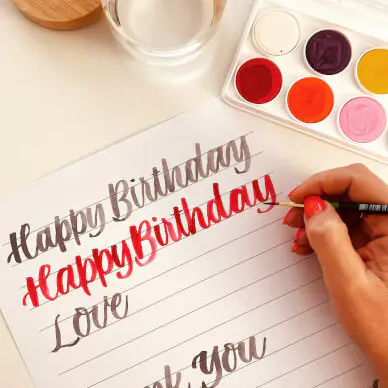 Happy Birthday
Happy Birthday
Love
You